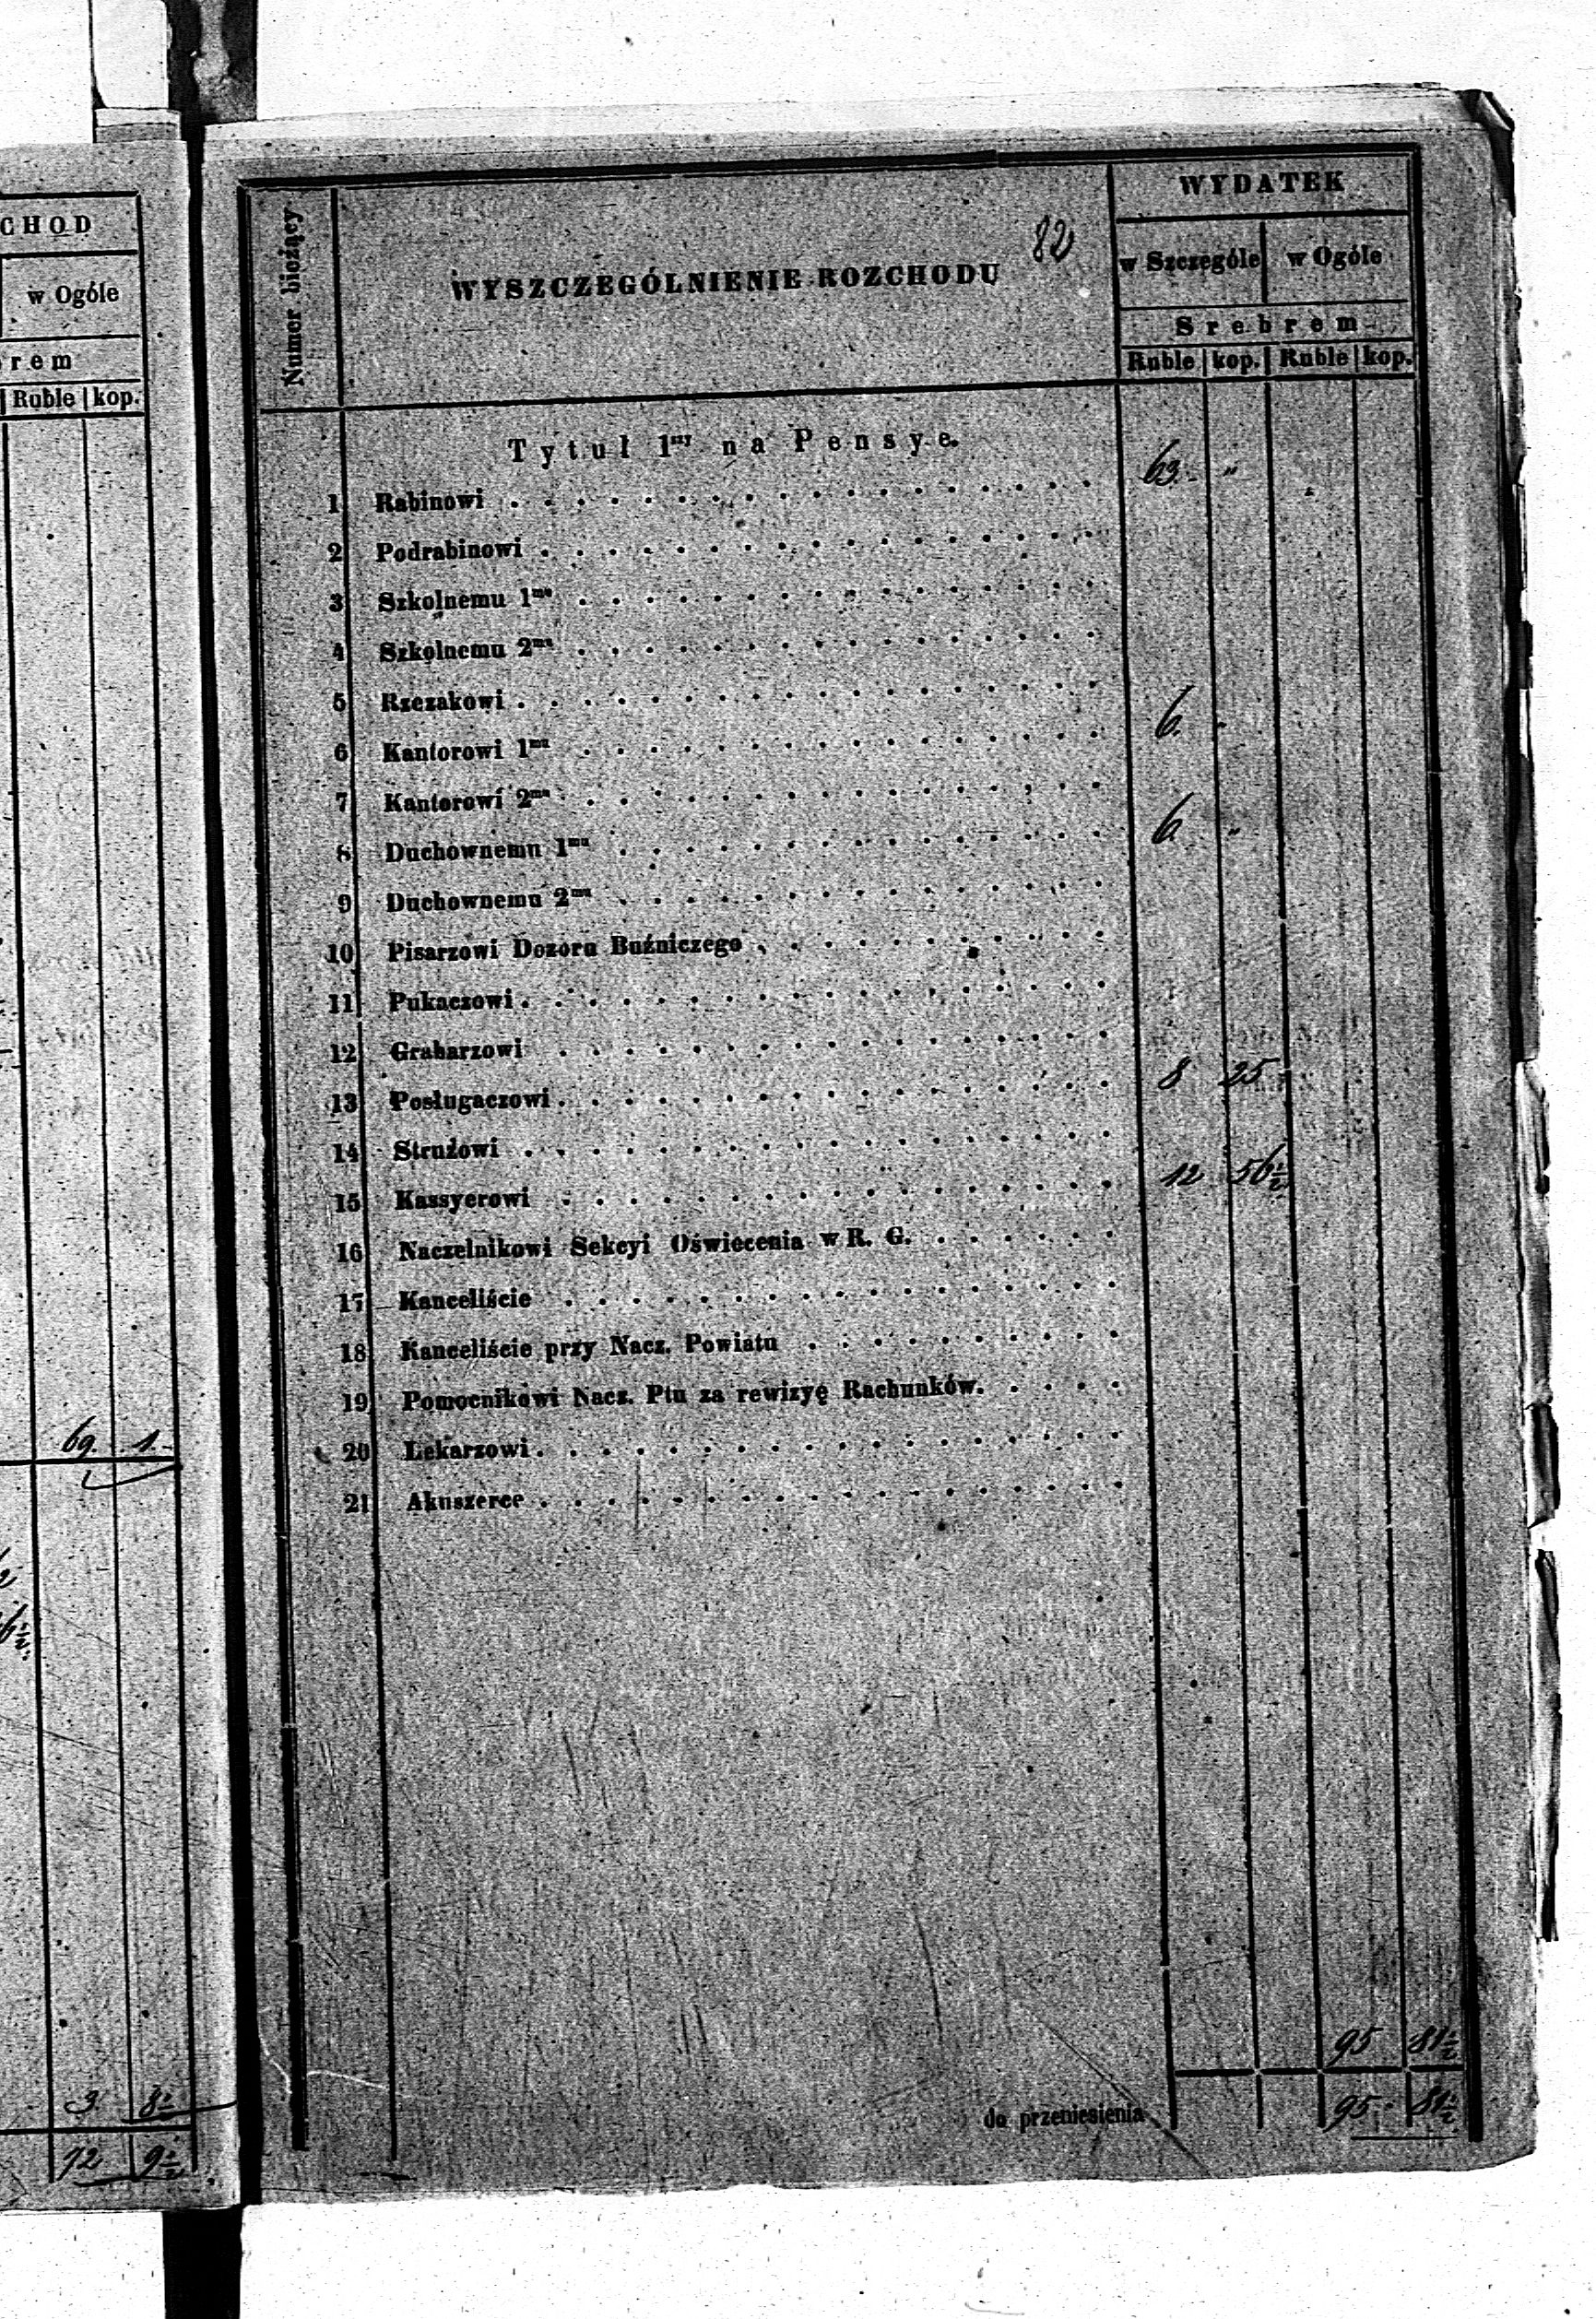 CHOD
w Ogóle
rem
Ruble kop.
69. 1.
3. 8 1/2
72 9 1/2
82
Numer bieżący
WYSZCZEGÓLNIENIE ROZCHODU
WYDATEK
w Szczególe w Ogóle
Srebrem
Ruble kop. Ruble kop.
Tytuł 1ny na Pensye.
1 Rabinowi . . . 63. "
2 Podrabinowi . . .
3 Szkolnemu 1mu . . .
4 Szkolnemu 2mu . . .
5 Rzezakowi . . .
6 Kantorowi 1mu . . . 6. "
7 Kantorowi 2mu . . .
8 Duchownemu 1mu . . . 6. "
9 Duchownemu 2mu . . .
10 Pisarzowi Dozoru Bużniczego . . .
11 Pukaczowi . . .
12 Grabarzowi . . .
13 Posługaczowi . . . 8 25
14 Strużowi . . .
15 Kassyerowi . . . 12 56 1/2
16 Naczelnikowi Sekcyi Oświecenia w R. G. . . .
17 Kanceliście . . .
18 Kanceliście przy Nacz. Powiatu . . .
19 Pomocnikowi Nacz. Ptu za rewizyę Rachunków. . . .
20 Lekarzowi . . .
21 Akuszerce . . .
95 81 1/2
do przeniesienia 95. 81 1/2